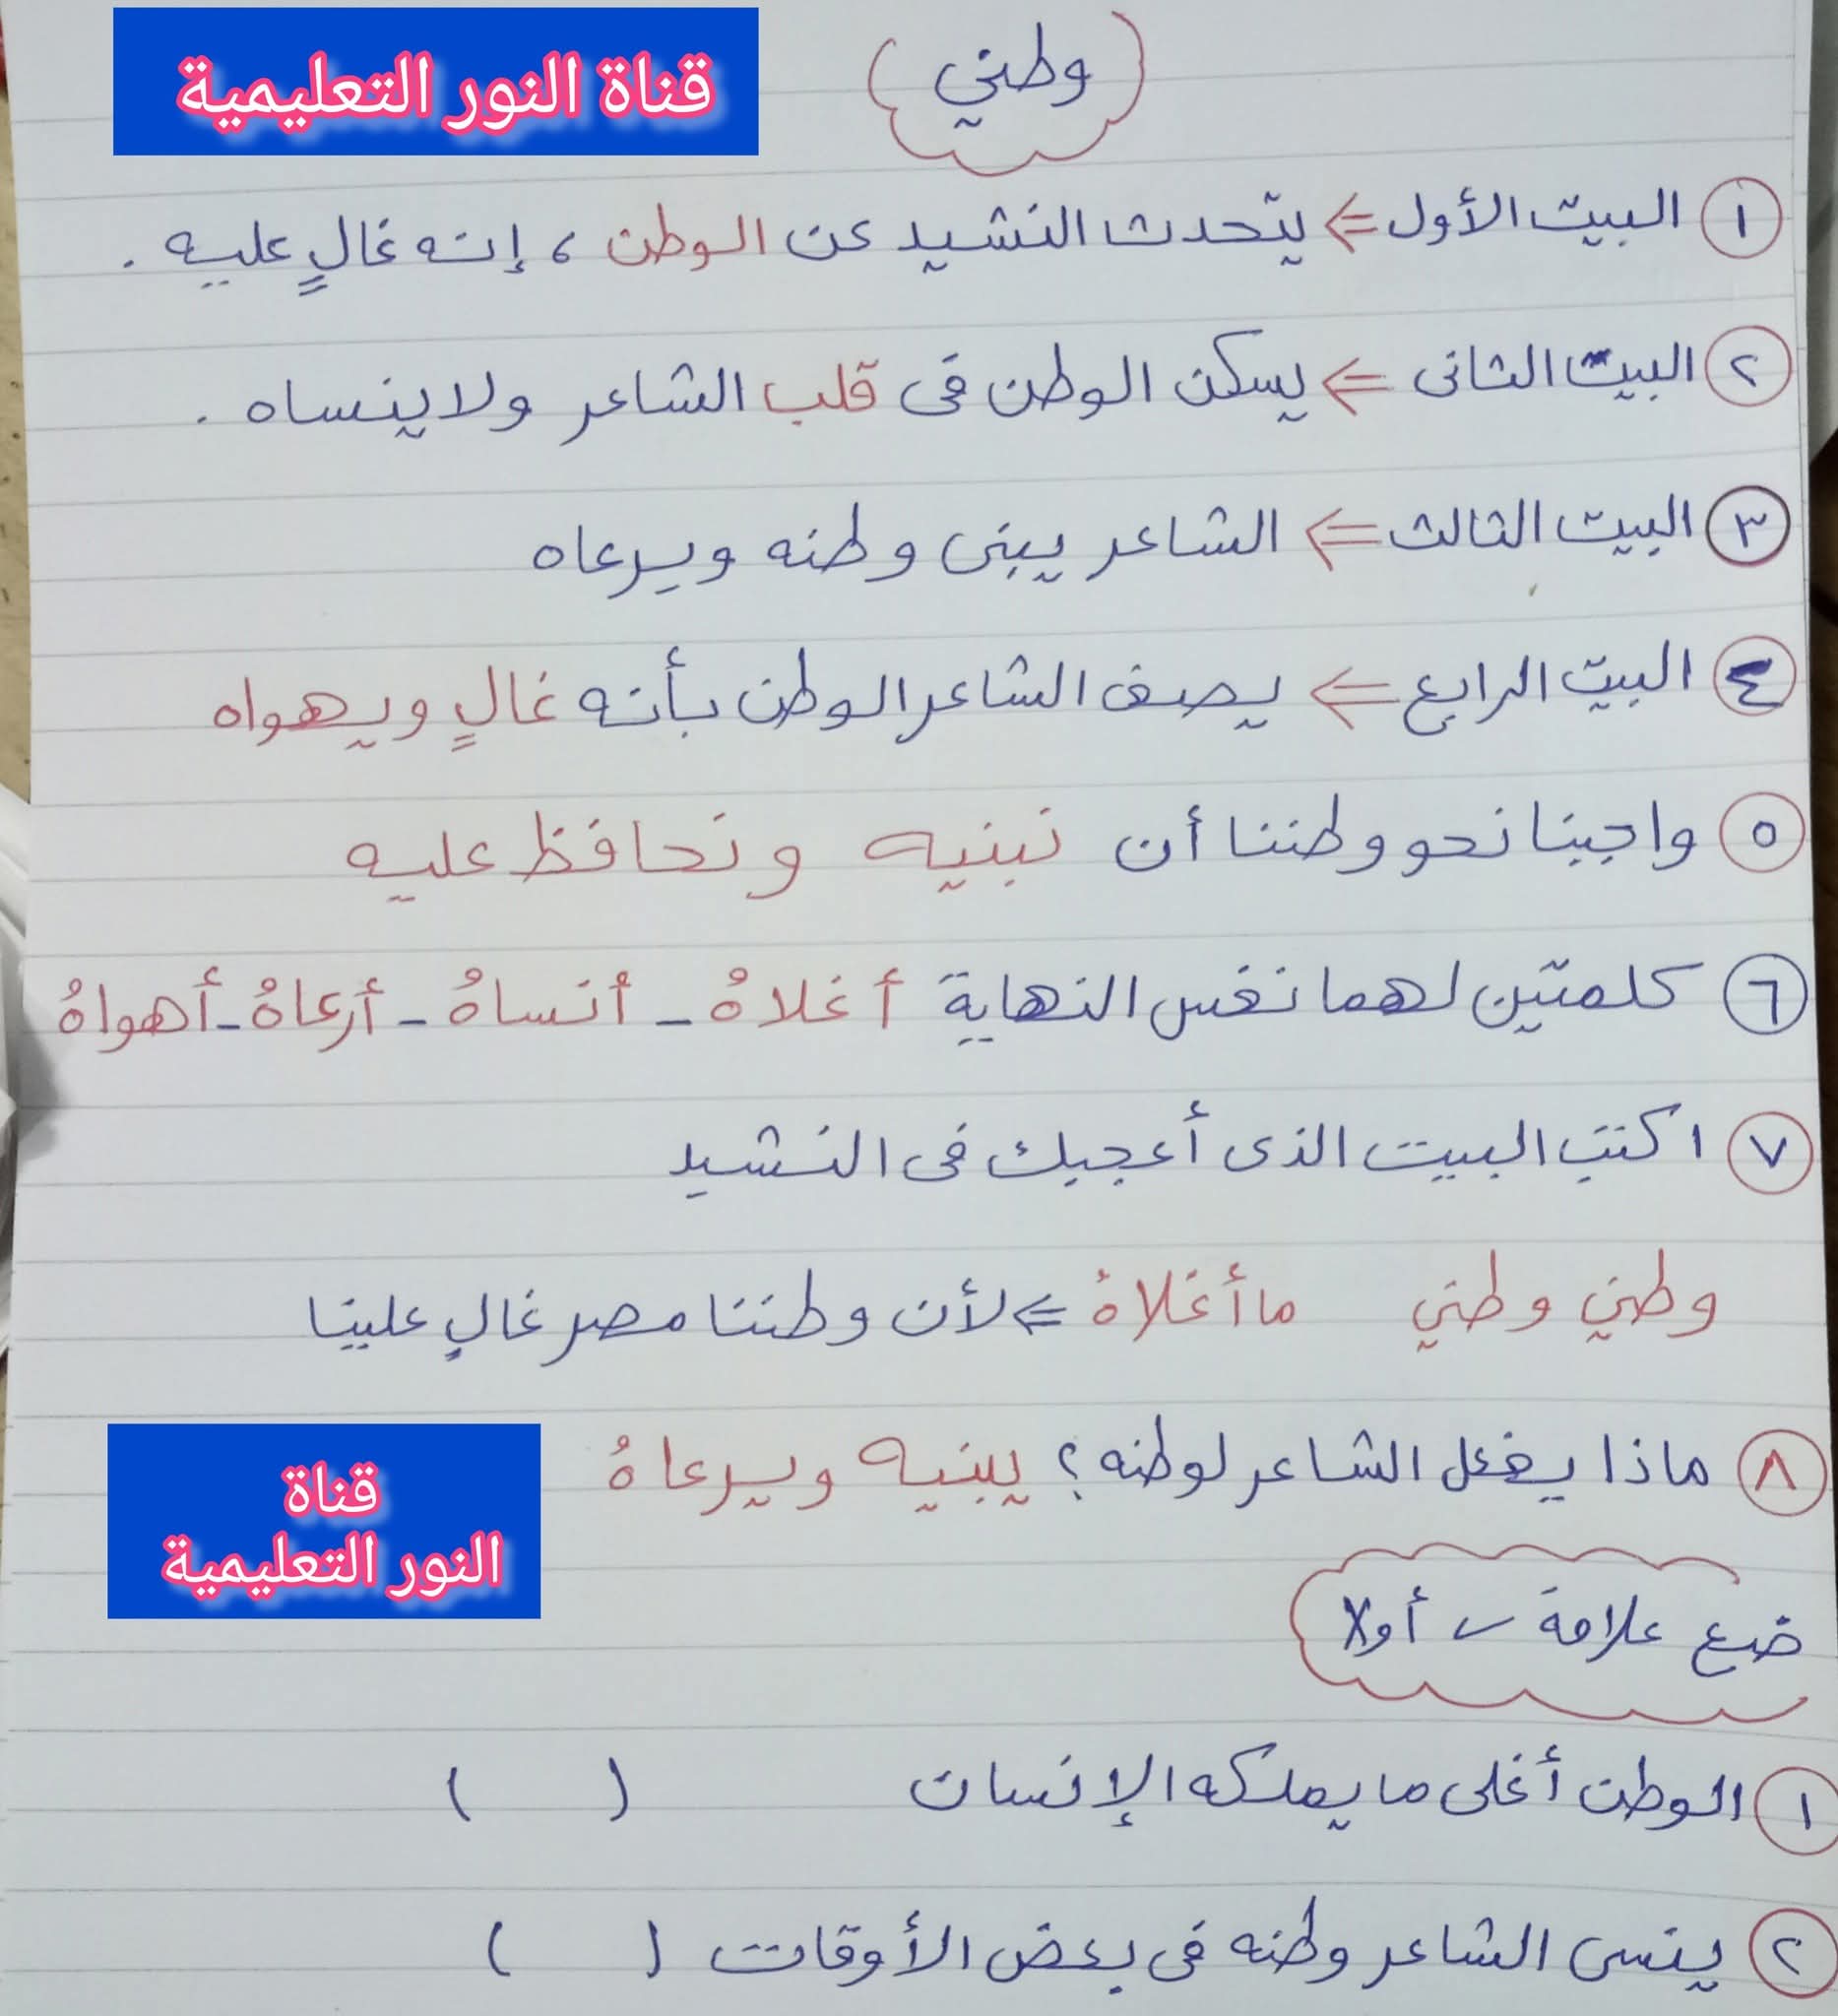 قناة النور التعليمية
(وطني)
١ البيت الأول <= يتحدث النشيد عن الوطن ، إنه غالٍ عليه .
٢ البيت الثانى <= يسكن الوطن فى قلب الشاعر ولا ينساه .
٣ البيت الثالث <= الشاعر يبنى وطنه ويرعاه
٤ البيت الرابع <= يصف الشاعر الوطن بأنه غالٍ ويهواه
٥ واجبنا نحو وطننا أن نبنيه ونحافظ عليه
٦ كلمتين لهما نفس النهاية أغلاهُ - أنساهُ - أرعاهُ - أهواهُ
٧ اكتب البيت الذى أعجبك فى النشيد
وطني وطني ما أغلاهُ <= لأن وطننا مصر غالٍ علينا
٨ ماذا يفعل الشاعر لوطنه؟ يبنيه ويرعاهُ
قناة
النور التعليمية
ضع علامة ✓ أو X
١ الوطن أغلى ما يملكه الإنسان ( )
٢ ينسى الشاعر وطنه فى بعض الأوقات ( )